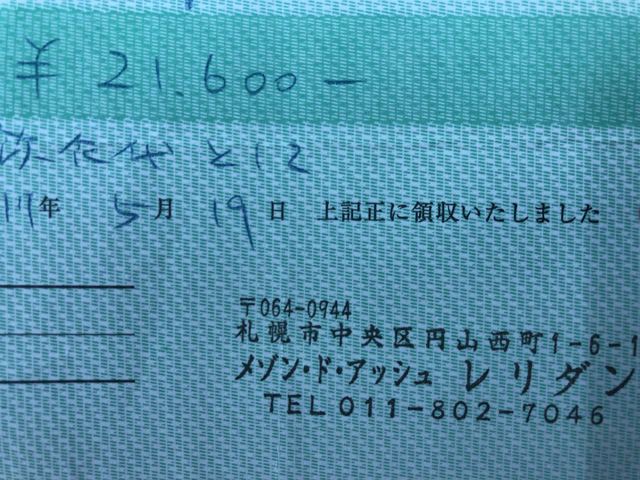 ¥ 21.600 —
飲食代として
年 5月 19日 上記正に領収いたしました
〒064-0944
札幌市中央区円山西町1-6-1
メゾン・ド・アッシュ レリダン
TEL 011-802-7046